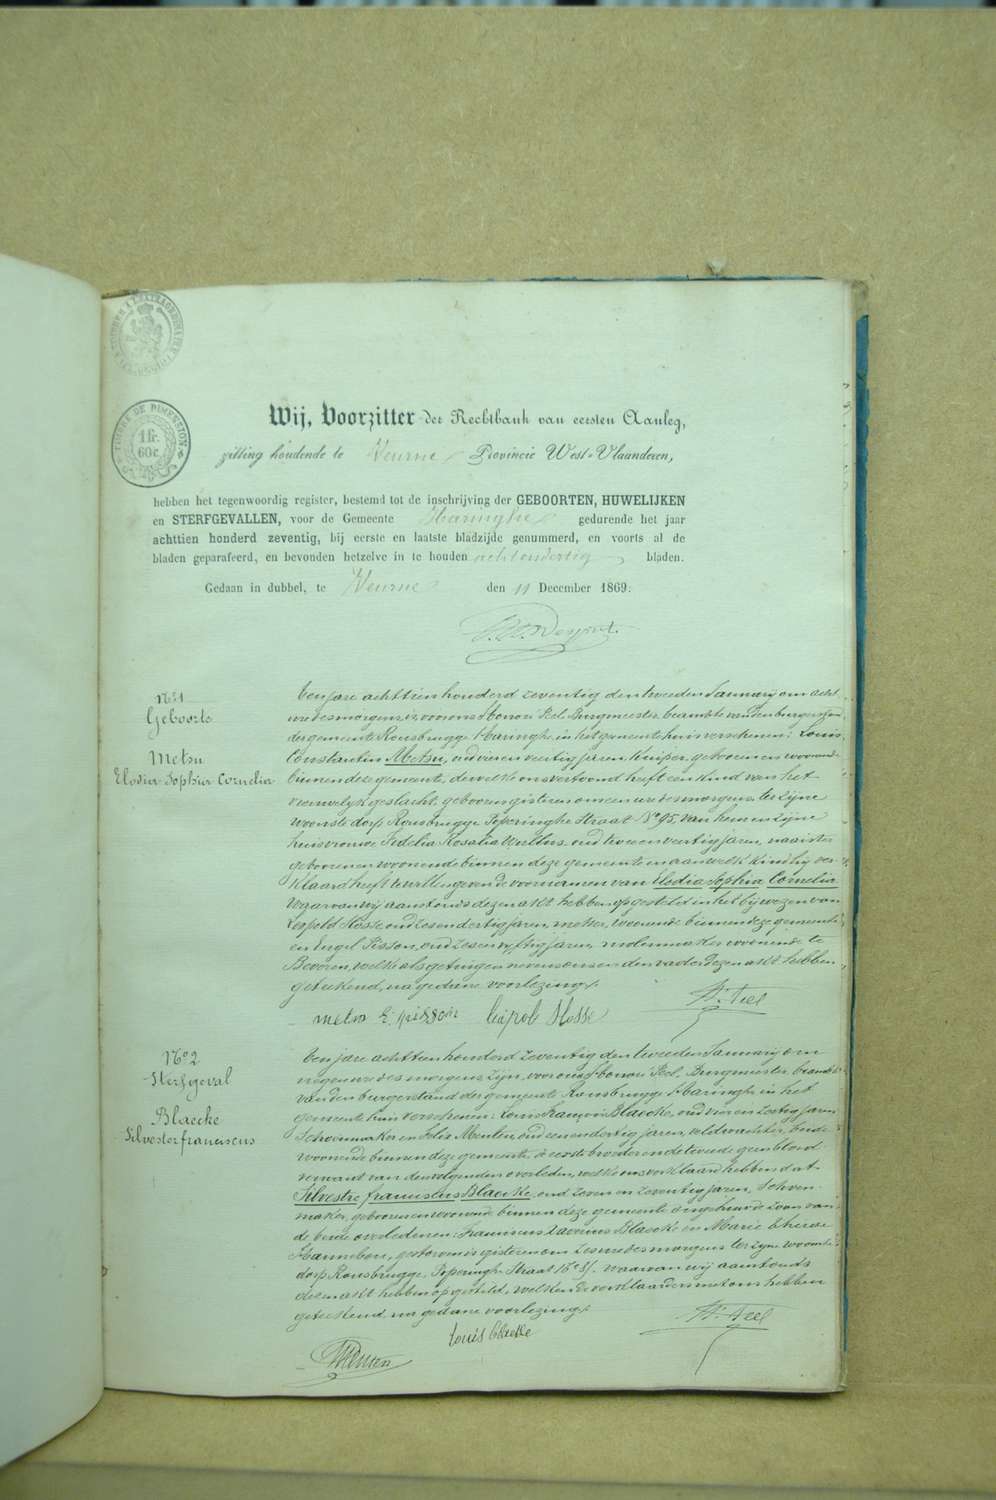 TIMBRE DE DIMENSION
1 fr.
60 c.
Wij, Voorzitter der Rechtbank van eersten Aanleg,
zitting houdende te Veurne Provincie West-Vlaanderen,
hebben het tegenwoordig register, bestemd tot de inschrijving der GEBOORTEN, HUWELIJKEN
en STERFGEVALLEN, voor de Gemeente Haringhe gedurende het jaar
achttien honderd zeventig, bij eerste en laatste bladzijde genummerd, en voorts al de
bladen geparafeerd, en bevonden hetzelve in te houden achtendertig bladen.
Gedaan in dubbel, te Veurne den 11 December 1869.
N° 1
Geboorte
Metsu
Elodia Sophia Cornelia
Ten jare achttien honderd zeventig den tweeden January om acht
ure des morgens, voor ons Honoré Feel, Burgmeester beambte van den burgerstand
der gemeente Rousbrugge Haringhe in het gemeentehuis verschenen: Louis
Constantin Metsu, oud vier en veertig jaren, kuiper, geboren en woonende
binnen deze gemeente, dewelke ons vertoond heeft een kind van het
vrouwelyk geslacht, geboren gisteren om een ure des morgens ter zyne
woonste dorp Rousbrugge Poperinghe Straat N° 95, van hem en zyne
huisvrouwe Fidelia Rosalia oud twee en veertig jaren, naaister
geboren en woonende binnen deze gemeente en aan welk kind hy ver-
klaard heeft te willen geven de voornamen van Elodia Sophia Cornelia
Waarvan wy aanstonds dezen akt hebben opgesteld in het bywezen van
Leopold Hosse oud zes en dertig jaren, woonende binnen deze gemeente
en Engel Pisson, oud zes en vyftig jaren, molenmaker woonende te
Beveren, welke als getuigen nevens ons en den vader dezen akt hebben
geteekend, na gedane voorlezing.
metsu E. pisson Leopold Hosse H. Feel
N° 2
Sterfgeval
Blaecke
Silvester franciscus
Ten jare achttien honderd zeventig den tweeden January om
negen ure des morgens zyn, voor ons Honoré Feel, Burgmeester, beambte
van den burgerstand der gemeente Rousbrugge Haringhe in het
gemeentehuis verschenen: Louis François Blaecke, oud vier en zestig jaren,
Schoenmaker en Felix Meulen, oud een en dertig jaren, veldwachter, beide
woonende binnen deze gemeente, de eerste broeder en de tweede geen bloed-
verwant van den volgenden overleden, welke ons verklaard hebben dat
Silvestre franciscus Blaecke, oud zeven en zeventig jaren, Schoen-
maker, geboren en woonende binnen deze gemeente ongehuwde zoon van
de beide overledenen: Franciscus Blaecke en Marie Therese
Hannebou, gestorven is gisteren om zes ure des morgens ter zyne woonste
dorp Rousbrugge, Poperinghe Straat waarvan wy aanstonds
dezen akt hebben opgesteld, welken de verklaarders met ons hebben
geteekend, na gedane voorlezing.
Louis blaecke H. Feel